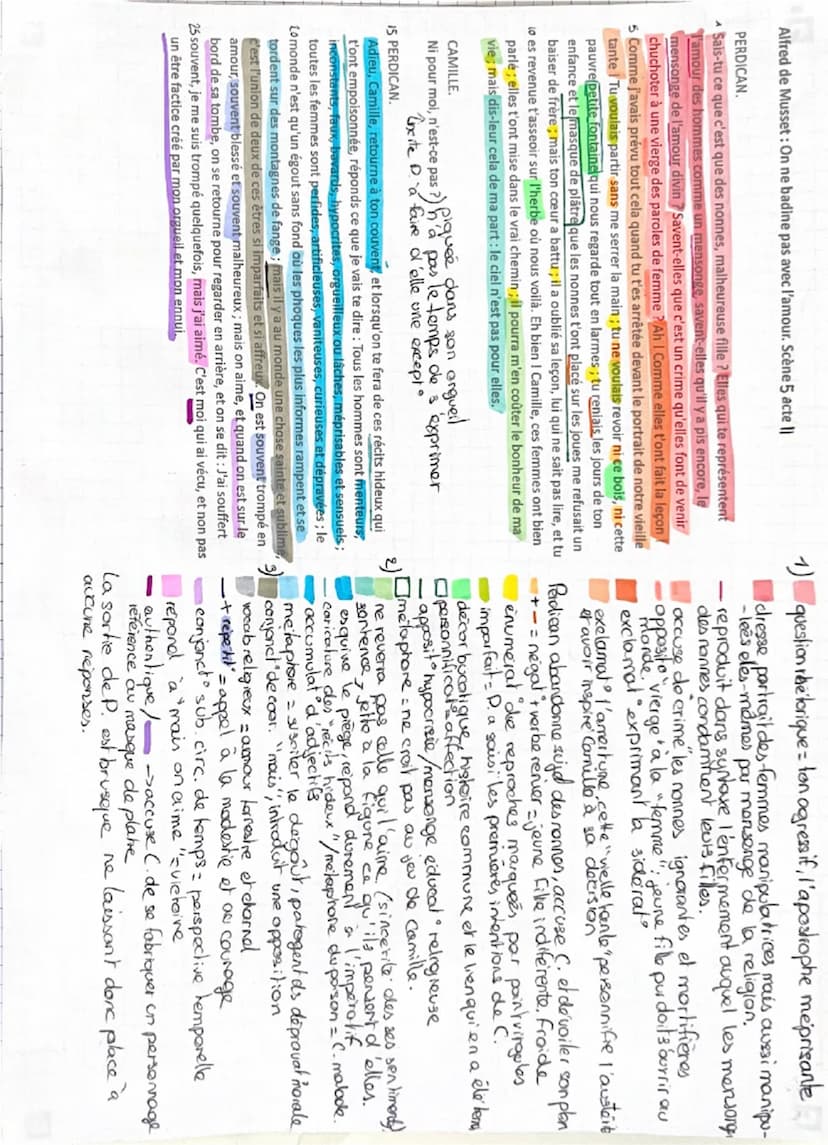 Alfred de Musset : On ne badine pas avec l'amour. Scène 5 acte II
PERDICAN.
1 Sais-tu ce que c'est que des nonnes, malheureuse fille ? Elles qui te représentent
l'amour des hommes comme un mensonge, savent-elles qu'il y a pis encore, le
mensonge de l'amour divin ? Savent-elles que c'est un crime qu'elles font de venir
chuchoter à une vierge des paroles de femme ? Ah ! Comme elles t'ont fait la leçon !
5 Comme j'avais prévu tout cela quand tu t'es arrêtée devant le portrait de notre vieille
tante ! Tu voulais partir sans me serrer la main ; tu ne voulais revoir ni ce bois, ni cette
pauvre petite fontaine qui nous regarde tout en larmes ; tu reniais les jours de ton
enfance et le masque de plâtre que les nonnes t'ont placé sur les joues me refusait un
baiser de frère ; mais ton cœur a battu ; il a oublié sa leçon, lui qui ne sait pas lire, et tu
10 es revenue t'asseoir sur l'herbe où nous voilà. Eh bien ! Camille, ces femmes ont bien
parlé ; elles t'ont mise dans le vrai chemin ; il pourra m'en coûter le bonheur de ma
vie ; mais dis-leur cela de ma part : le ciel n'est pas pour elles.
CAMILLE.
Ni pour moi, n'est-ce pas ? piquée dans son orgueil
n'a pas le temps de s'exprimer
incite P. à faire d'elle une except°
15 PERDICAN.
Adieu, Camille, retourne à ton couvent, et lorsqu'on te fera de ces récits hideux qui
t'ont empoisonnée, réponds ce que je vais te dire : Tous les hommes sont menteurs,
inconstants, faux, bavards, hypocrites, orgueilleux ou lâches, méprisables et sensuels ;
toutes les femmes sont perfides, artificieuses, vaniteuses, curieuses et dépravées ; le
20 monde n'est qu'un égout sans fond où les phoques les plus informes rampent et se
tordent sur des montagnes de fange ; mais il y a au monde une chose sainte et sublime,
c'est l'union de deux de ces êtres si imparfaits et si affreux. On est souvent trompé en
amour, souvent blessé et souvent malheureux ; mais on aime, et quand on est sur le
bord de sa tombe, on se retourne pour regarder en arrière, et on se dit : J'ai souffert
25 souvent, je me suis trompé quelquefois, mais j'ai aimé. C'est moi qui ai vécu, et non pas
un être factice créé par mon orgueil et mon ennui.
1) question rhétorique = ton agressif, l'apostrophe méprisante
dresse portrait des femmes manipulatrices mais aussi manipu-
-lées elles-mêmes par mensonge de la religion.
reproduit dans syntaxe l'enfermement auquel les mensong
des nonnes condamnent leurs filles.
accuse de crime "les nonnes ignorantes et mortifières
opposit° "vierge" à la "femme" : jeune fille pur doit s'ouvrir au
monde.
exclamat° exprimant la sidérat°
exclamat° l'amertume cette "vieille tante" personnifie l'austérit
et avoir inspiré Camille à sa décision
Perdican abandonne sujet des nonnes, accuse C. et dévoiler son plan
+ — = négat° + verbe renier = jeune fille indiférente, froide
énumérat° de reproches marquées par point virgules
imparfait = P. a saisi les premières intentions de C.
décor bucolique, histoire commune et le lien qui en a été tiens
personnificat° = affection
opposit° hypocrisie/mensonge éducat° religieuse
métaphore = ne croit pas au jeu de Camille.
2) ne reverra pas celle qui l'aime (sincérité des ses sentiments)
sentence, jette à la figure ce qu'ils pensent d'elles.
esquive le piège, répond durement à l'impératif
caricature des "récits hideux"/métaphore du poison = C. malade.
accumulat° d'adjectifs
métaphore = susciter le dégoût, patogent ds dépravat° morale
3) conjonct° de coor. "mais", introduit une opposition
vocab religieux = amour terrestre et charnel
— + répétit° = appel à la modestie et au courage
conjonct° sub. circ. de temps = perspective temporelle
répond à "mais on aime" = victoire
authentique/ → accuse C. de se fabriquer un personnage
référence au masque de platre
La sortie de P. est brusque ne laissant donc place à
aucune réponses.